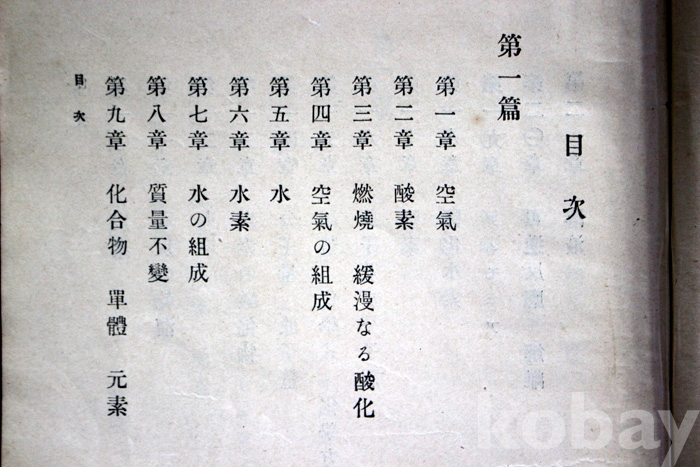 目次
第一篇
第一章 空氣
第二章 酸素
第三章 燃燒 緩漫なる酸化
第四章 空氣の組成
第五章 水
第六章 水素
第七章 水の組成
第八章 質量不變
第九章 化合物 單體 元素
目次
kobay